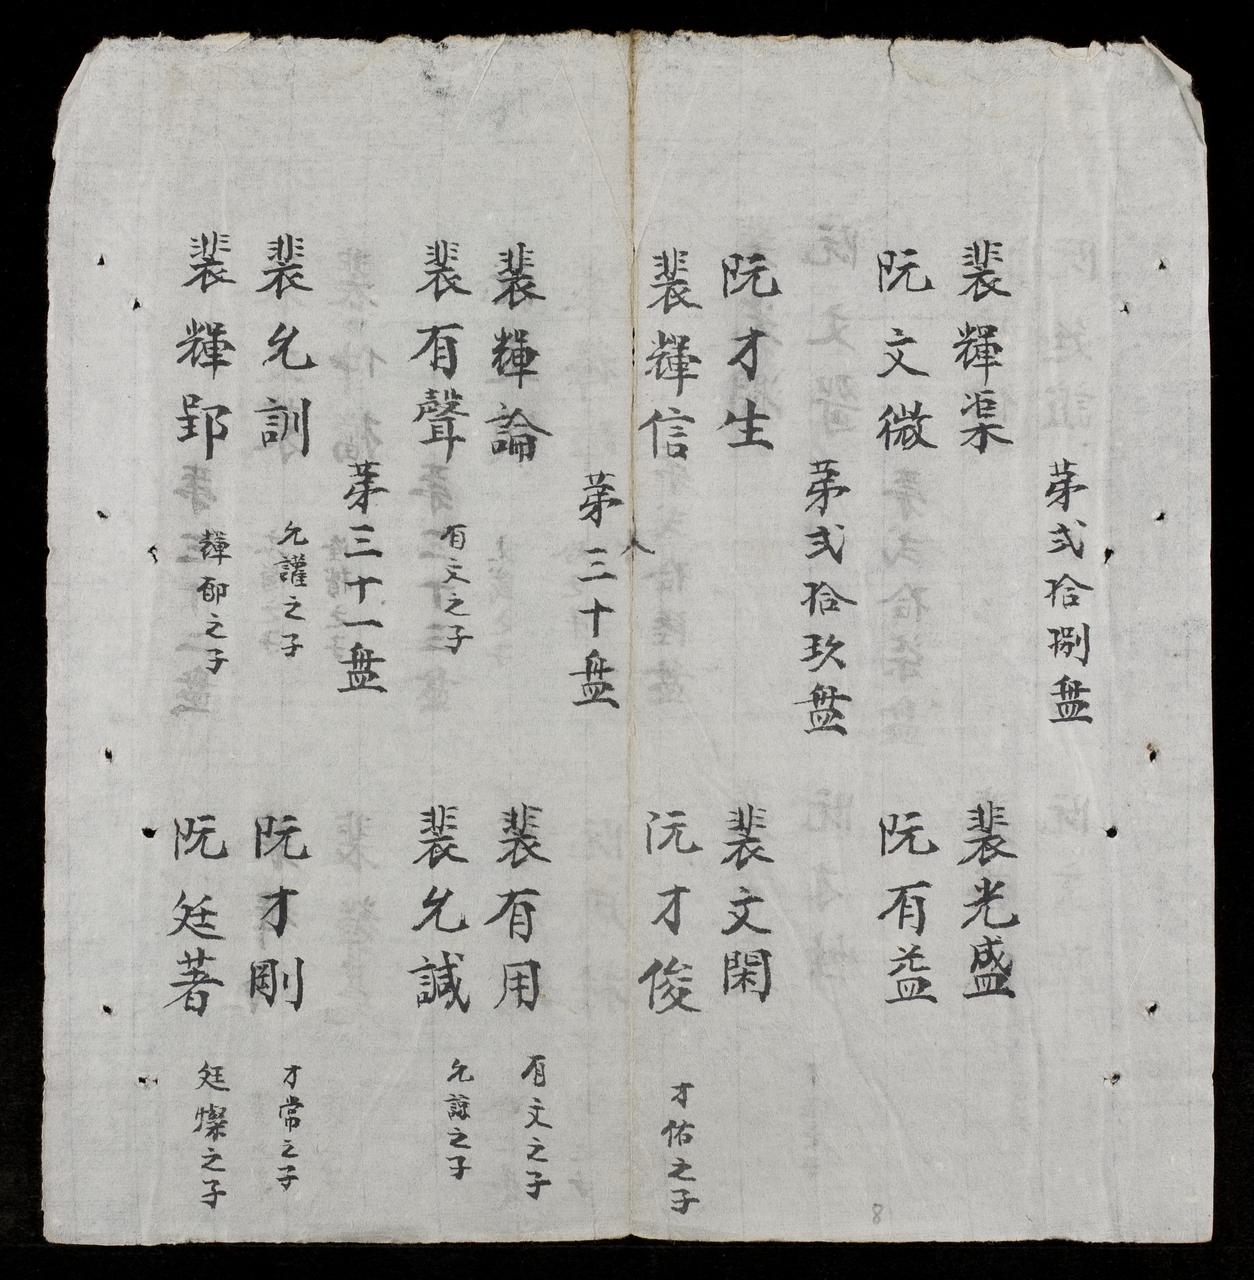 苐弍拾捌盤
裴輝渠
裴光盛
阮文微
阮有益
苐弍拾玖盤
阮才生
裴文閑
裴輝信
阮才俊
才佑之子
苐三十盤
裴輝論
裴有用
有文之子
裴有聲
有文之子
裴允諴
允諒之子
苐三十一盤
裴允訓
允讙之子
阮才剛
才常之子
裴輝郢
輝郁之子
阮廷著
廷燦之子
8